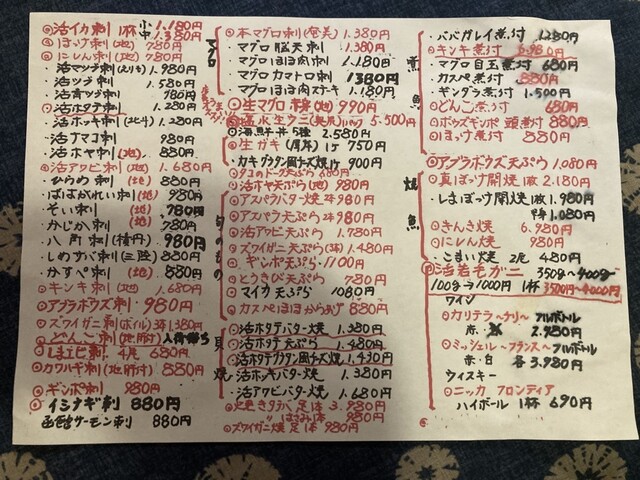 ◎活イカ刺 1杯 小 1.180円
中 1.380円
◎ほっけ刺(地) 780円
◎にしん刺(地) 780円
・活マツブ刺 1.980円
・活ツブ刺 1.580円
・活青ツブ刺 780円
◎活ホタテ刺 1.280円
・活ホッキ刺(北斗) 1.280円
・活ナマコ刺 980円
・活ホヤ刺(地) 880円
◎活アワビ刺(地) 1.680円
・ひらめ刺(地) 880円
・ばばがれい刺(地) 980円
・そい刺(地) 780円
・かじか刺(地) 780円
・八角刺(積丹) 980円
・しめさば刺(三陸) 880円
・かすべ刺(地) 880円
◎キンキ刺(地) 1.680円
◎アブラボウズ刺 980円
◎ズワイガニ刺(ボイル)3本 1.380円
◎どんこ刺(地:肝付)入荷待ち
◎しまエビ刺 4尾 680円
◎カワハギ刺(地:肝付) 880円
◎ギンポ刺 980円
◎イシナギ刺 880円
サーモン刺 880円
マグロ
◎本マグロ刺(奄美) 1.380円
・マグロ脳天刺 1.380円
・マグロほほ肉刺 1.180円
・マグロカマトロ刺 1380円
・マグロほほ肉ステーキ 1.180円
◎生マグロ(地) 990円
◎塩水生ウニ 5.500円
◎海鮮丼5種 2.580円
◎生ガキ 1ケ 750円
・カキグラタン風チーズ焼 1ケ 900円
旬のもの
◎タコのドーナツ天ぷら 680円
◎活ホヤ天ぷら(地) 980円
◎アスパラバター焼 2本 980円
◎アスパラ天ぷら 2本 980円
◎活アワビ天ぷら 1.780円
◎ズワイガニ天ぷら(3本) 1.480円
◎ギンポ天ぷら 1100円
◎とうきび天ぷら 780円
◎マイカ天ぷら 1080円
◎カスベほほからあげ 880円
貝焼
◎活ホタテバター焼 1.380円
◎活ホタテ天ぷら 1.480円
◎活ホタテグラタン風チーズ焼 1.430円
・活ホッキバター焼 1.380円
・活アワビバター焼 1.680円
◎焼きタラバ足1本 3.980円
〃 はさみ1本 980円
◎ズワイガニ焼足1本 980円
煮魚
・ババガレイ煮付 1280円
◎キンキ煮付 6.980円
・マグロ目玉煮付 680円
・カスペ煮付 880円
・ギンダラ煮付 1.500円
◎どんこ煮付 680円
◎ボウズギンポ 頭煮付 880円
◎ほっけ煮付 880円
◎アブラボウズ天ぷら 1.080円
焼魚
◎真ほっけ開焼 1枚 2.180円
・しまほっけ開焼 1枚 1.980円
半身 1.080円
◎きんき焼 6.980円
◎にしん焼 980円
・こまい焼 2尾 480円
◎活若毛ガニ 350g〜400g
100g→1000円 1杯 3500円〜4000円
ワイン
◎カリテラ 〜チリ〜 フルボトル
赤・ 2.980円
◎ミッシェル 〜フランス〜 フルボトル
赤・白 各3.980円
ウィスキー
◎ニッカ フロンティア
ハイボール 1杯 690円